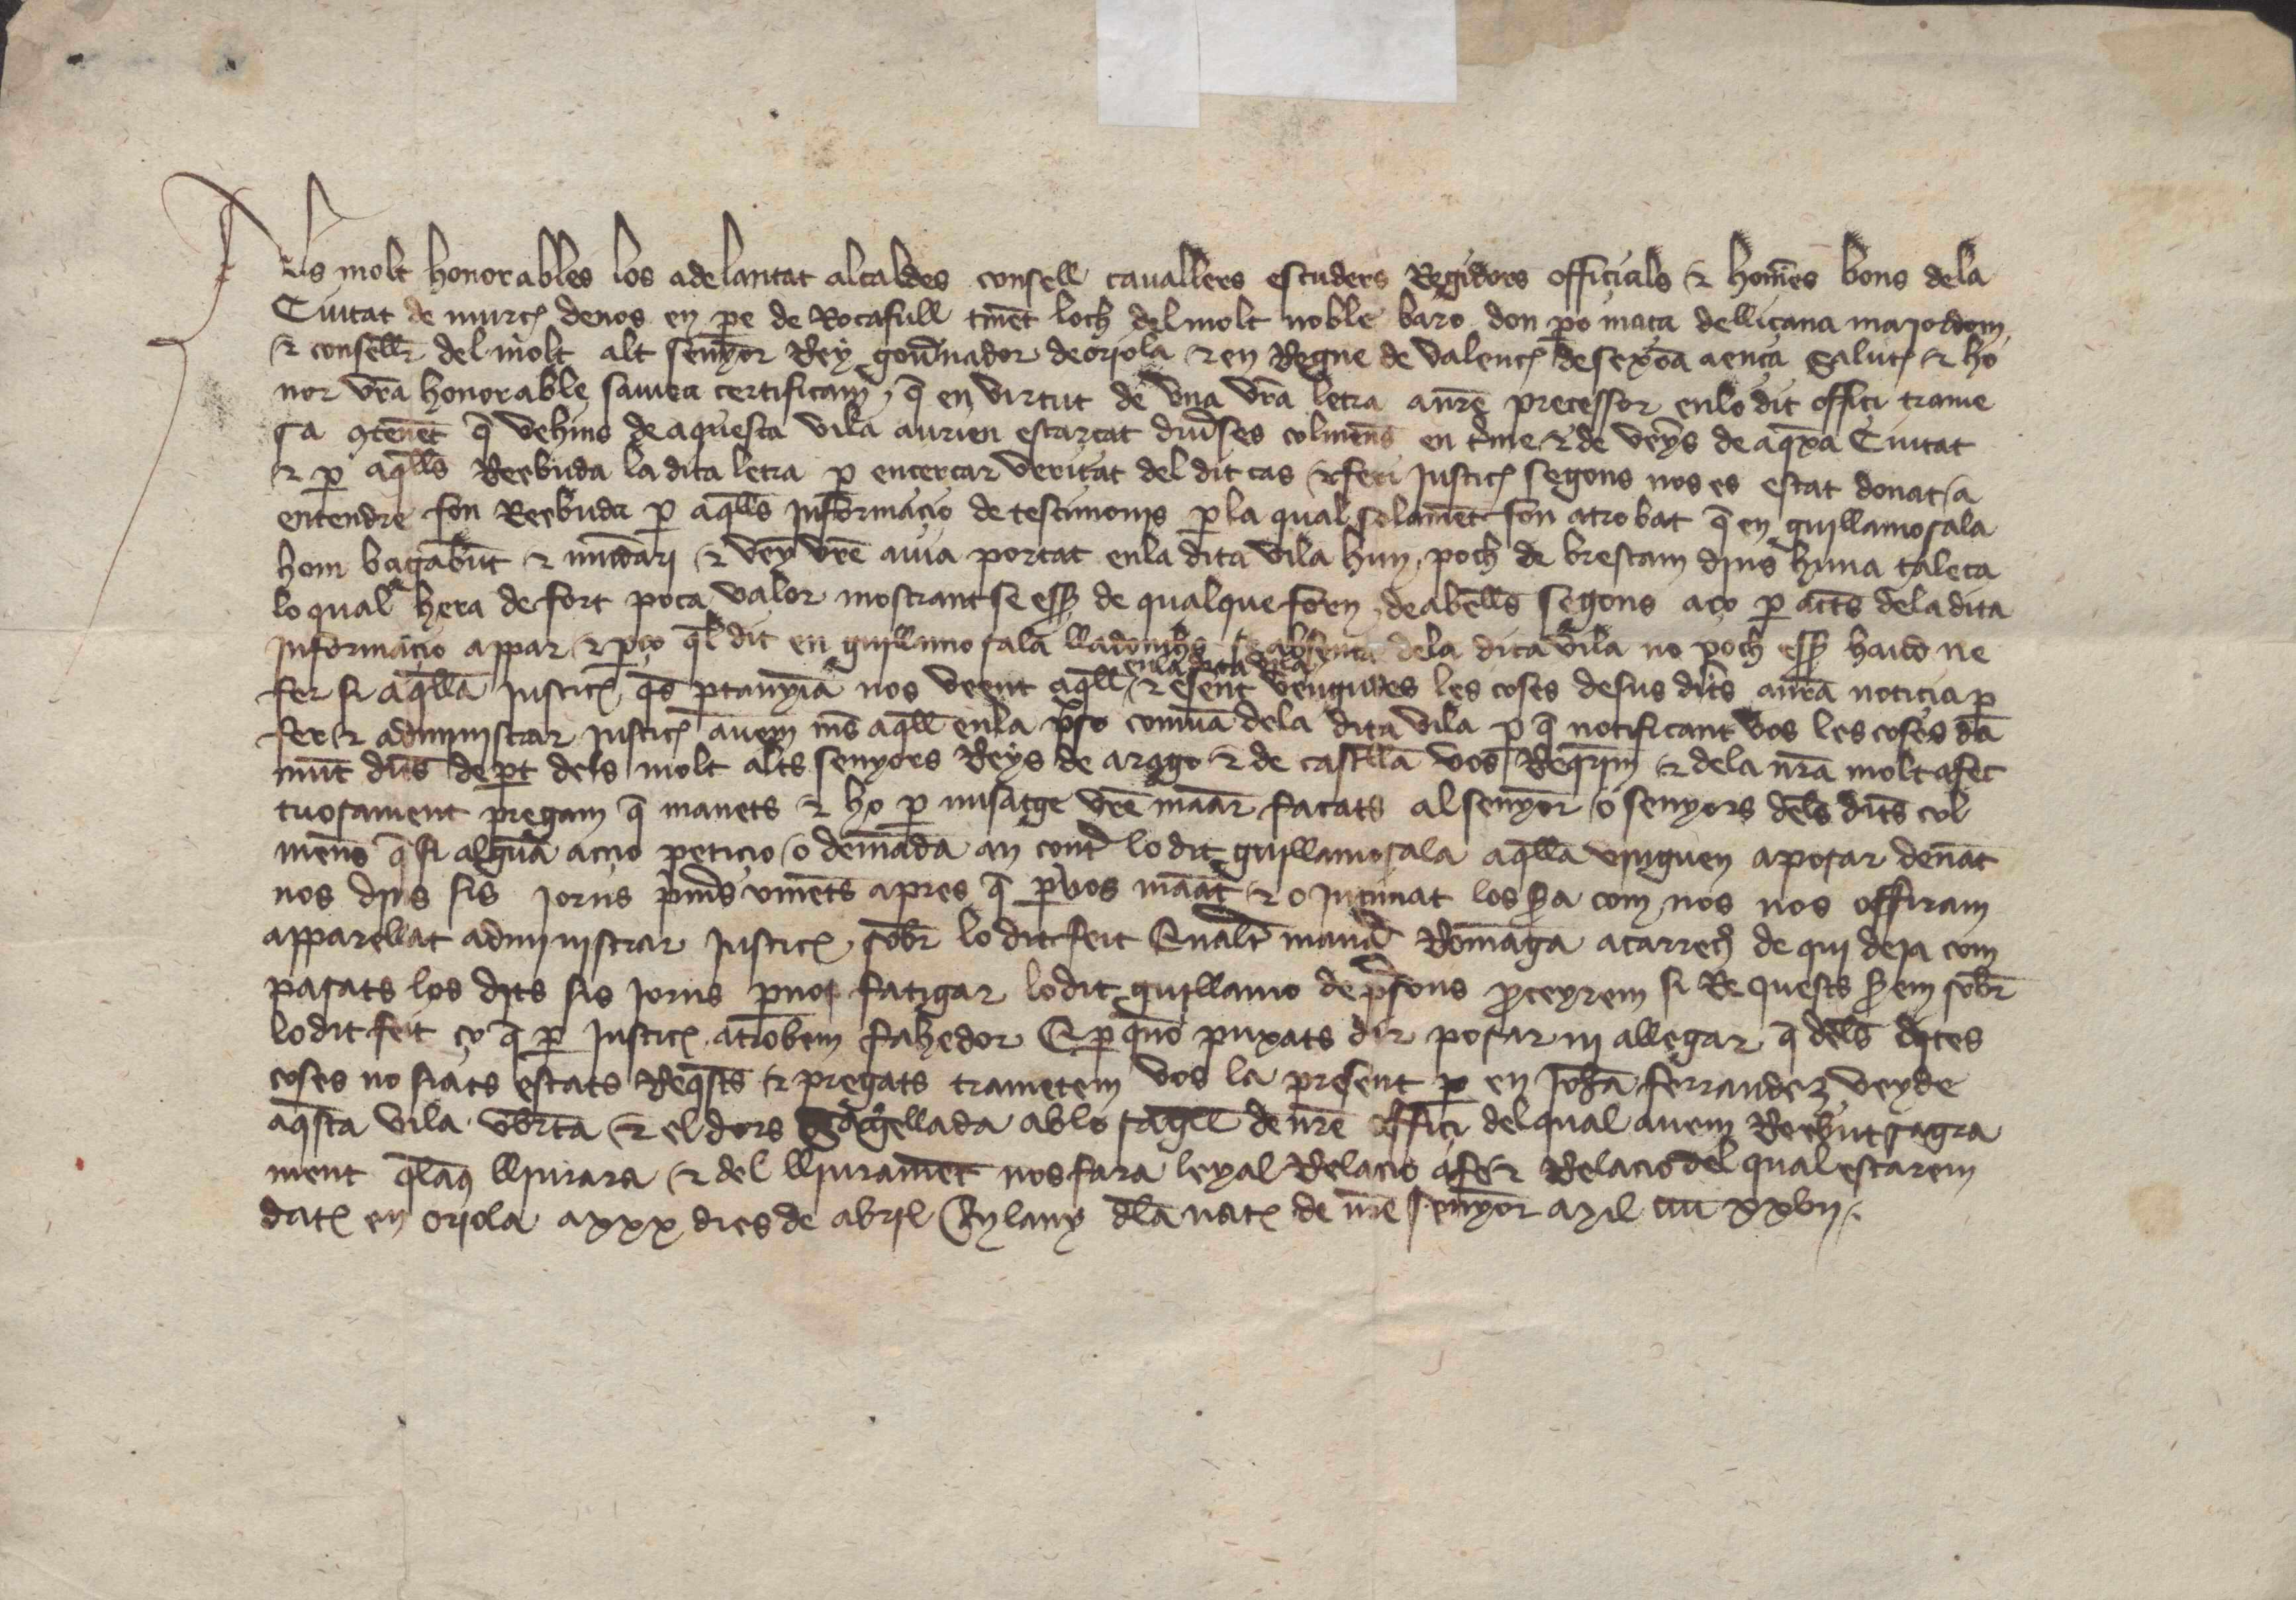 Als molt honorables los adelantat alcaldes consell cauallers escuders Regidors officials & homēs bons dela
Ciutat de murcȷ denos en pe de Rocafull tinēt loch del molt noble baro don po maça delliçana majordom
& consellr del molt alt senyor Rey gou̅nador de oriola & en Regne de valencȷ de sexōa aença Salutȷ & ho
nor vr̅a honorable sauiea certificam q̅ en virtut de vna vr̅a letra a nr̅e precessor enlo dit offici trame
sa 9tenēt q̅ vehins de aquesta vila aurien escarçat diu̅ses colmens en t̅me & de veys de aq̅xa Ciutat
& p aq̅lls Reebuda la dita letra p encerçar veritat del dit cas & feri justicȷ segons nos es estat donat a
entendre fon Reebuda p aq̅lls informacio de testimonis p la qual solamēt fon atrobat q̅ en guillamo sala
hom bagabūt & & veỹ vr̅e auia portat enla dita vila hun poch de brescam dins huna taleca
lo qual hera de fort poca valor mostrant se ess̅ de qualque forn de abells segons aço p actēs dela dita
informacio appar & p ço q̅l dit en guillamo sala lladonchs se absenta dela dita vila no poch ess̅ hauid ne
fer si aq̅lla justicȷ q̅s p̅tanyia nos veent aq̅ll enla dita vila & esent vengudes les coses desus dits a nr̅a noticia p
fer & administrar justicȷ auem mēs aq̅ll enla p̅so comuna dela dita vila p q̅ notificant vos les coses da
mūt dits de p̅t dels molt alts senyors Reys de arago & de castella vos Req̅rim & dela nr̅a molt afec
tuosament pregam q̅ manets & ho p misatge vr̅e manar façats al senyor o senyors dels dits col
mens q̅ si alguna accio peticio o demāda an cont̅ lo dit guillamo sala aq̅lla vinguen aposar denāt
nos dins sis jorns p̅m̅s vinēts apres q̅ p vos manat & o intimat los s̅a com nos nos offiram
apparellat administrar justicȷ sobr̅ lo dit feit Romāga a carrech de qui deja com
pasats los dits sis jorns p no fatigar lo dit guillamo de p̅sons p̅ceyrem si Requests s̅em sobr̅
lo dit feit ço q̅ p justicȷ atrobem fahedor E p q̅ no puxats dir posar ni allegar q̅ dels dites
coses no siats estats Req̅sts & pregats trametem vos la present p en Johā ferrandez vey de
aq̅sta vila vbr̅ta & el dors sagellada ablo sagell de nr̅e offici del qual auem Reebut sagra
ment q̅laus lliurara & del lliuramēt nos fara leyal Relacio a fe & Relacio del qual estarem
datȷ en oriola a xxx dies de abril En lany dla natȷ de nr̅e senyor Mil cccc xxvii